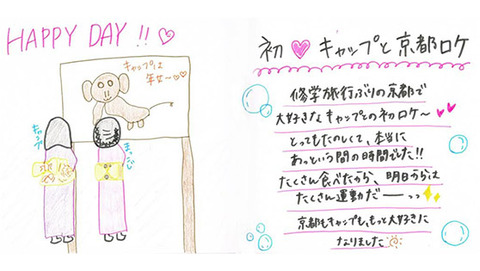 HAPPY DAY !! ♡
キャップは
年女〜♡♡
キャップ
まっぴ
初♥キャップと京都ロケ
修学旅行ぶりの京都で
大好きなキャップとの初ロケ〜
とってもたのしくて、本当に
あっという間の時間でした!!
たくさん食べたから、明日からは
たくさん運動だーーっっ
京都もキャップも、もっと大好きに
なりました